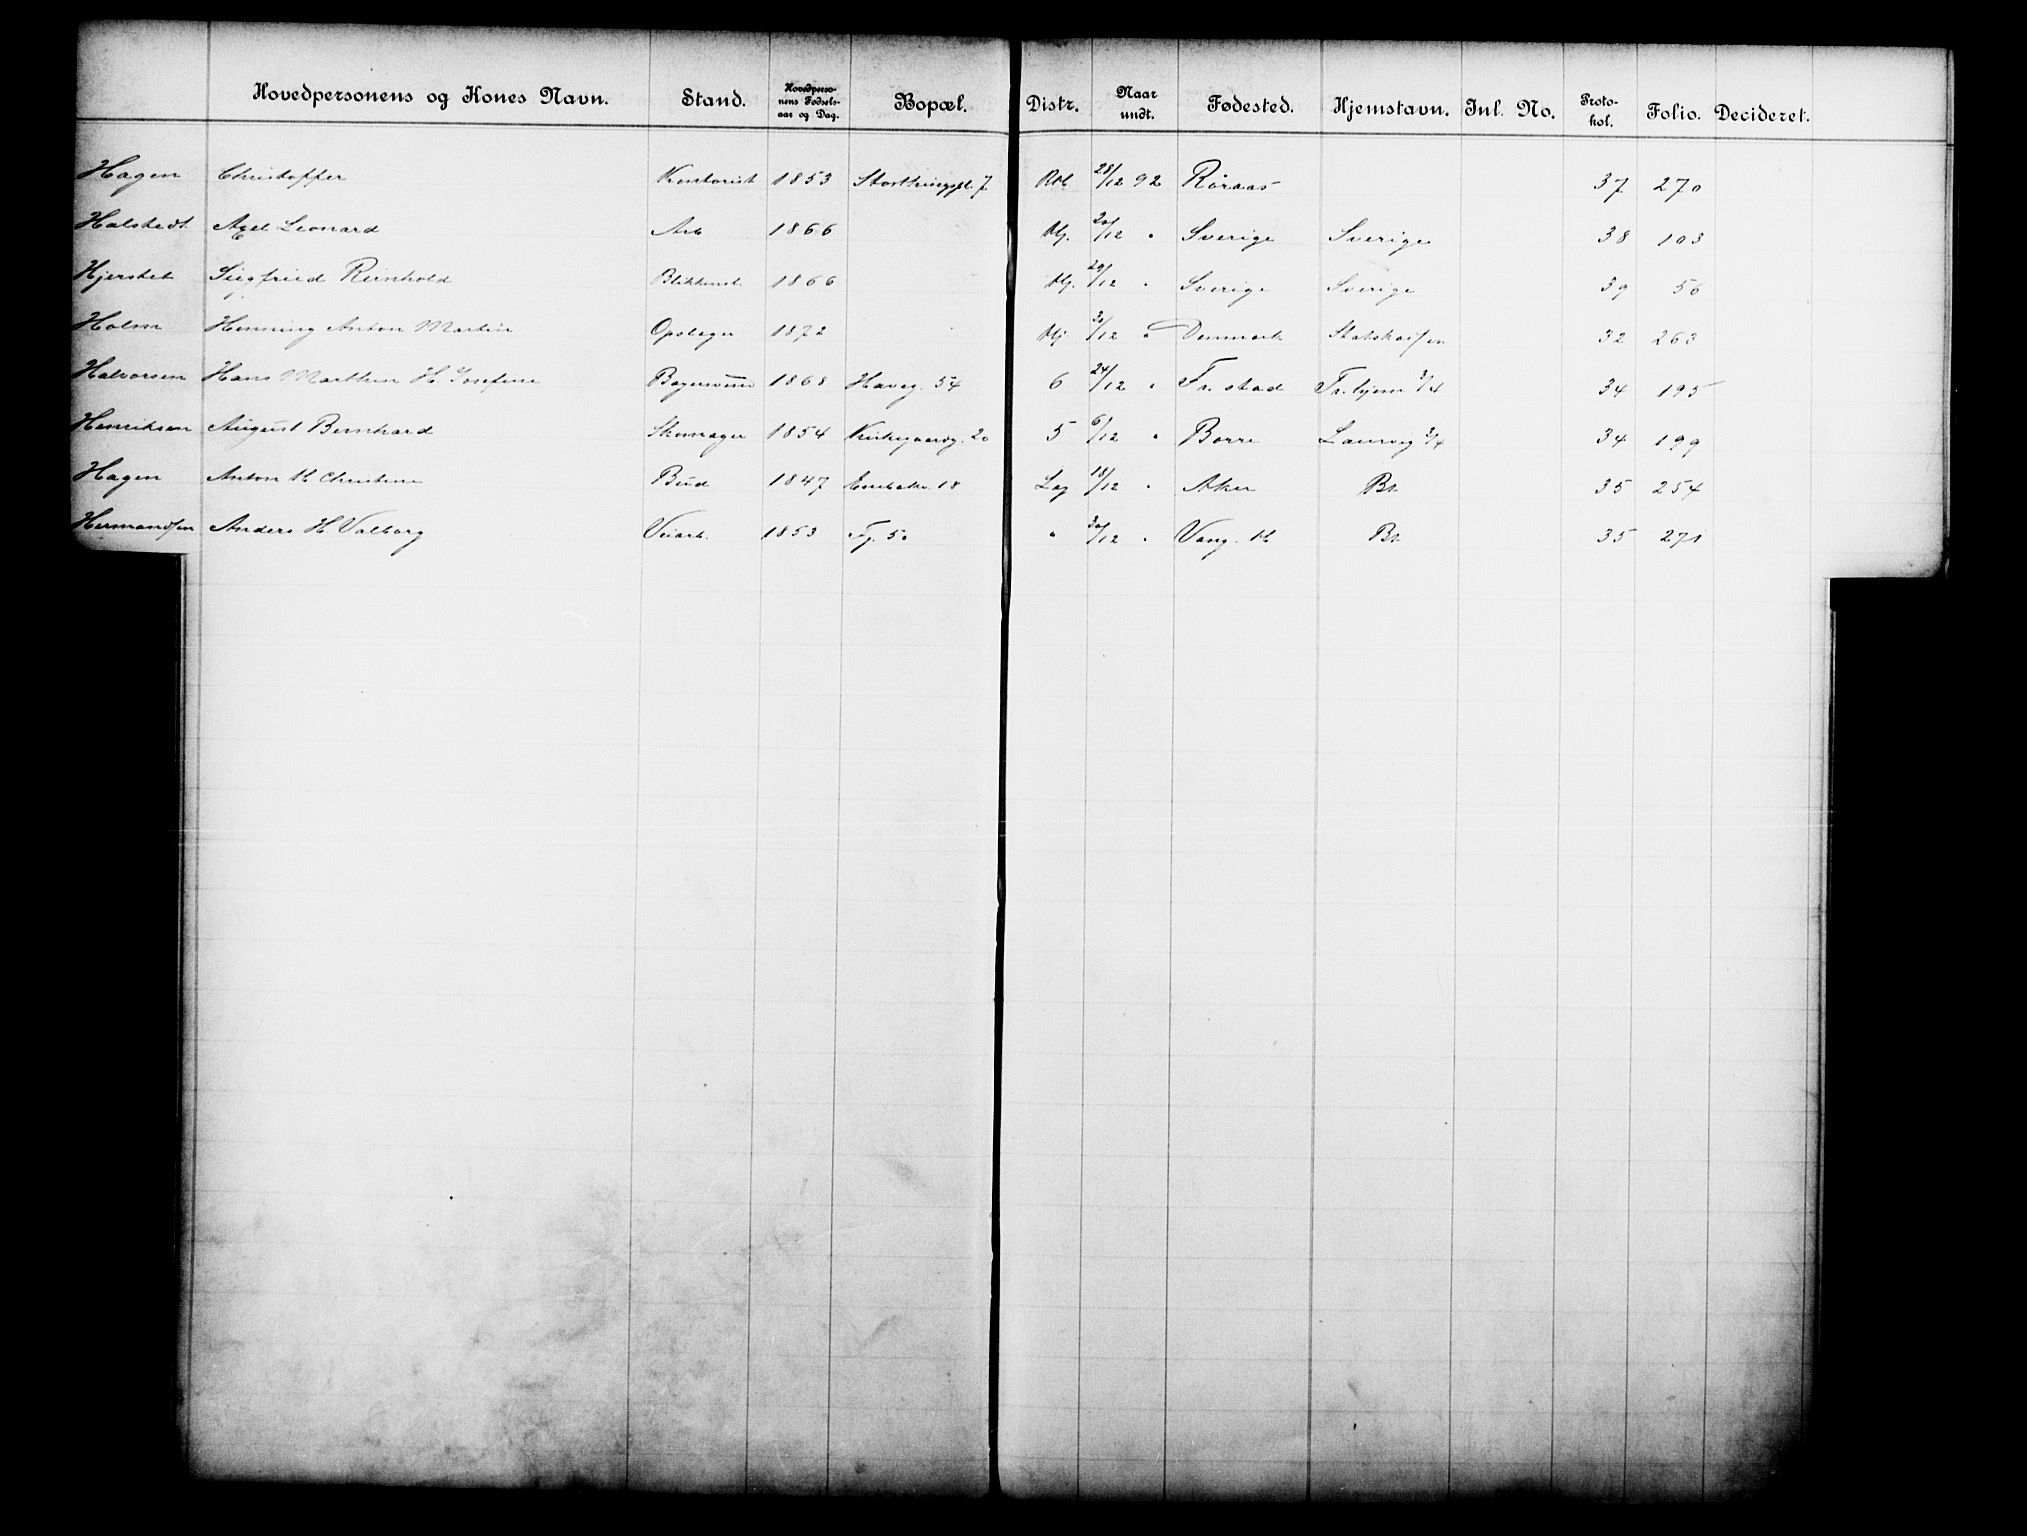 Hovedpersonens og Kones Navn. Stand. Hovedperso-nens Fødsels-aar og Dag. Bopæl. Distr. Naar undt. Fødested. Hjemstavn. Inl. No. Proto-kol. Folio. Decideret.
Hagen Christoffer Kontorist 1853 Storthingspl. 7 28/12 92 Røraas 37 270
Halstedt Axel Leonard Arb 1866 Hj. 20/12 " Sverige Sverige 38 103
Hjerstet Siegfried Reinhold Blikkensl. 1866 Hj. 29/12 " Sverige Sverige 39 56
Holm Henning Anton Martin Opslager 1872 Hj. /12 " Denmark 32 263
Halvorsen Hans Marthin H. Josefine Bagersvend 1868 Haveg. 54 6 24/12 " Fr.stad 3/4 34 195
Henriksen August Bernhard Skomager 1854 Kirkegaardsg. 20 5 6/12 " Borre Laurvig 3/4 34 199
Hagen Anton H. Christine Bud 1847 18 Lag 18/12 " Aker Bt 35 254
Hermandsen Anders H. Valborg Veiarb. 1853 50 " 30/12 " Vang. H Bt 35 271